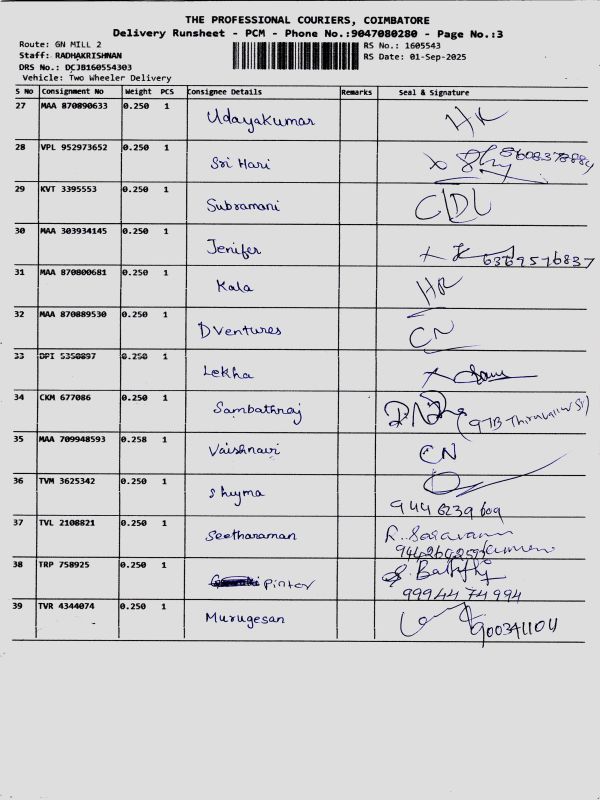 THE PROFESSIONAL COURIERS, COIMBATORE
Delivery Runsheet - PCM - Phone No.:9047080280 - Page No.:3
Route: GN MILL 2 RS No.: 1605543
Staff: RADHAKRISHNAN RS Date: 01-Sep-2025
DRS No.: DCJB160554303
Vehicle: Two Wheeler Delivery
S No Consignment No Weight PCS Consignee Details Remarks Seal & Signature
27 MAA 870890633 0.250 1 Udayakumar HK
28 VPL 952973652 0.250 1 Sri Hari
29 KVT 3395553 0.250 1 Subramani
30 MAA 303934145 0.250 1 Jenifer 6369576837
31 MAA 870800681 0.250 1 Kala HR
32 MAA 870889530 0.250 1 DVentures CN
33 DPI 5350897 0.250 1 Lekha
34 CKM 677086 0.250 1 Sambathraj
35 MAA 709948593 0.258 1 Vaishnavi CN
36 TVM 3625342 0.250 1 Shyma 9446239609
37 TVL 2108821 0.250 1 Seetharaman
38 TRP 758925 0.250 1 Pinter 9994474994
39 TVR 4344074 0.250 1 Murugesan